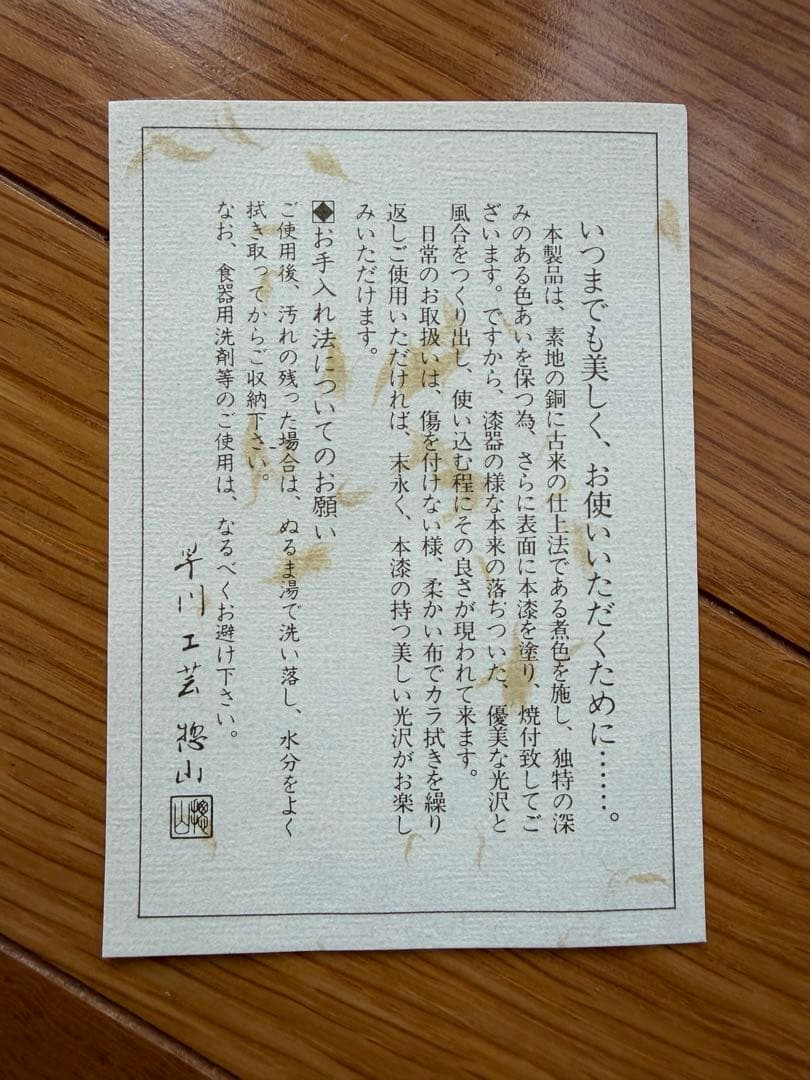 いつまでも美しく、お使いいただくために……。
本製品は、素地の銅に古来の仕上法である煮色を施し、独特の深
みのある色あいを保つ為、さらに表面に本漆を塗り、焼付致してご
ざいます。ですから、漆器の様な本来の落ちついた、優美な光沢と
風合をつくり出し、使い込む程にその良さが現われて来ます。
日常のお取扱いは、傷を付けない様、柔かい布でカラ拭きを繰り
返しご使用いただければ、末永く、本漆の持つ美しい光沢がお楽し
みいただけます。
◆お手入れ法についてのお願い
ご使用後、汚れの残った場合は、ぬるま湯で洗い落し、水分をよく
拭き取ってからご収納下さい。
なお、食器用洗剤等のご使用は、なるべくお避け下さい。
早川工芸 惣山